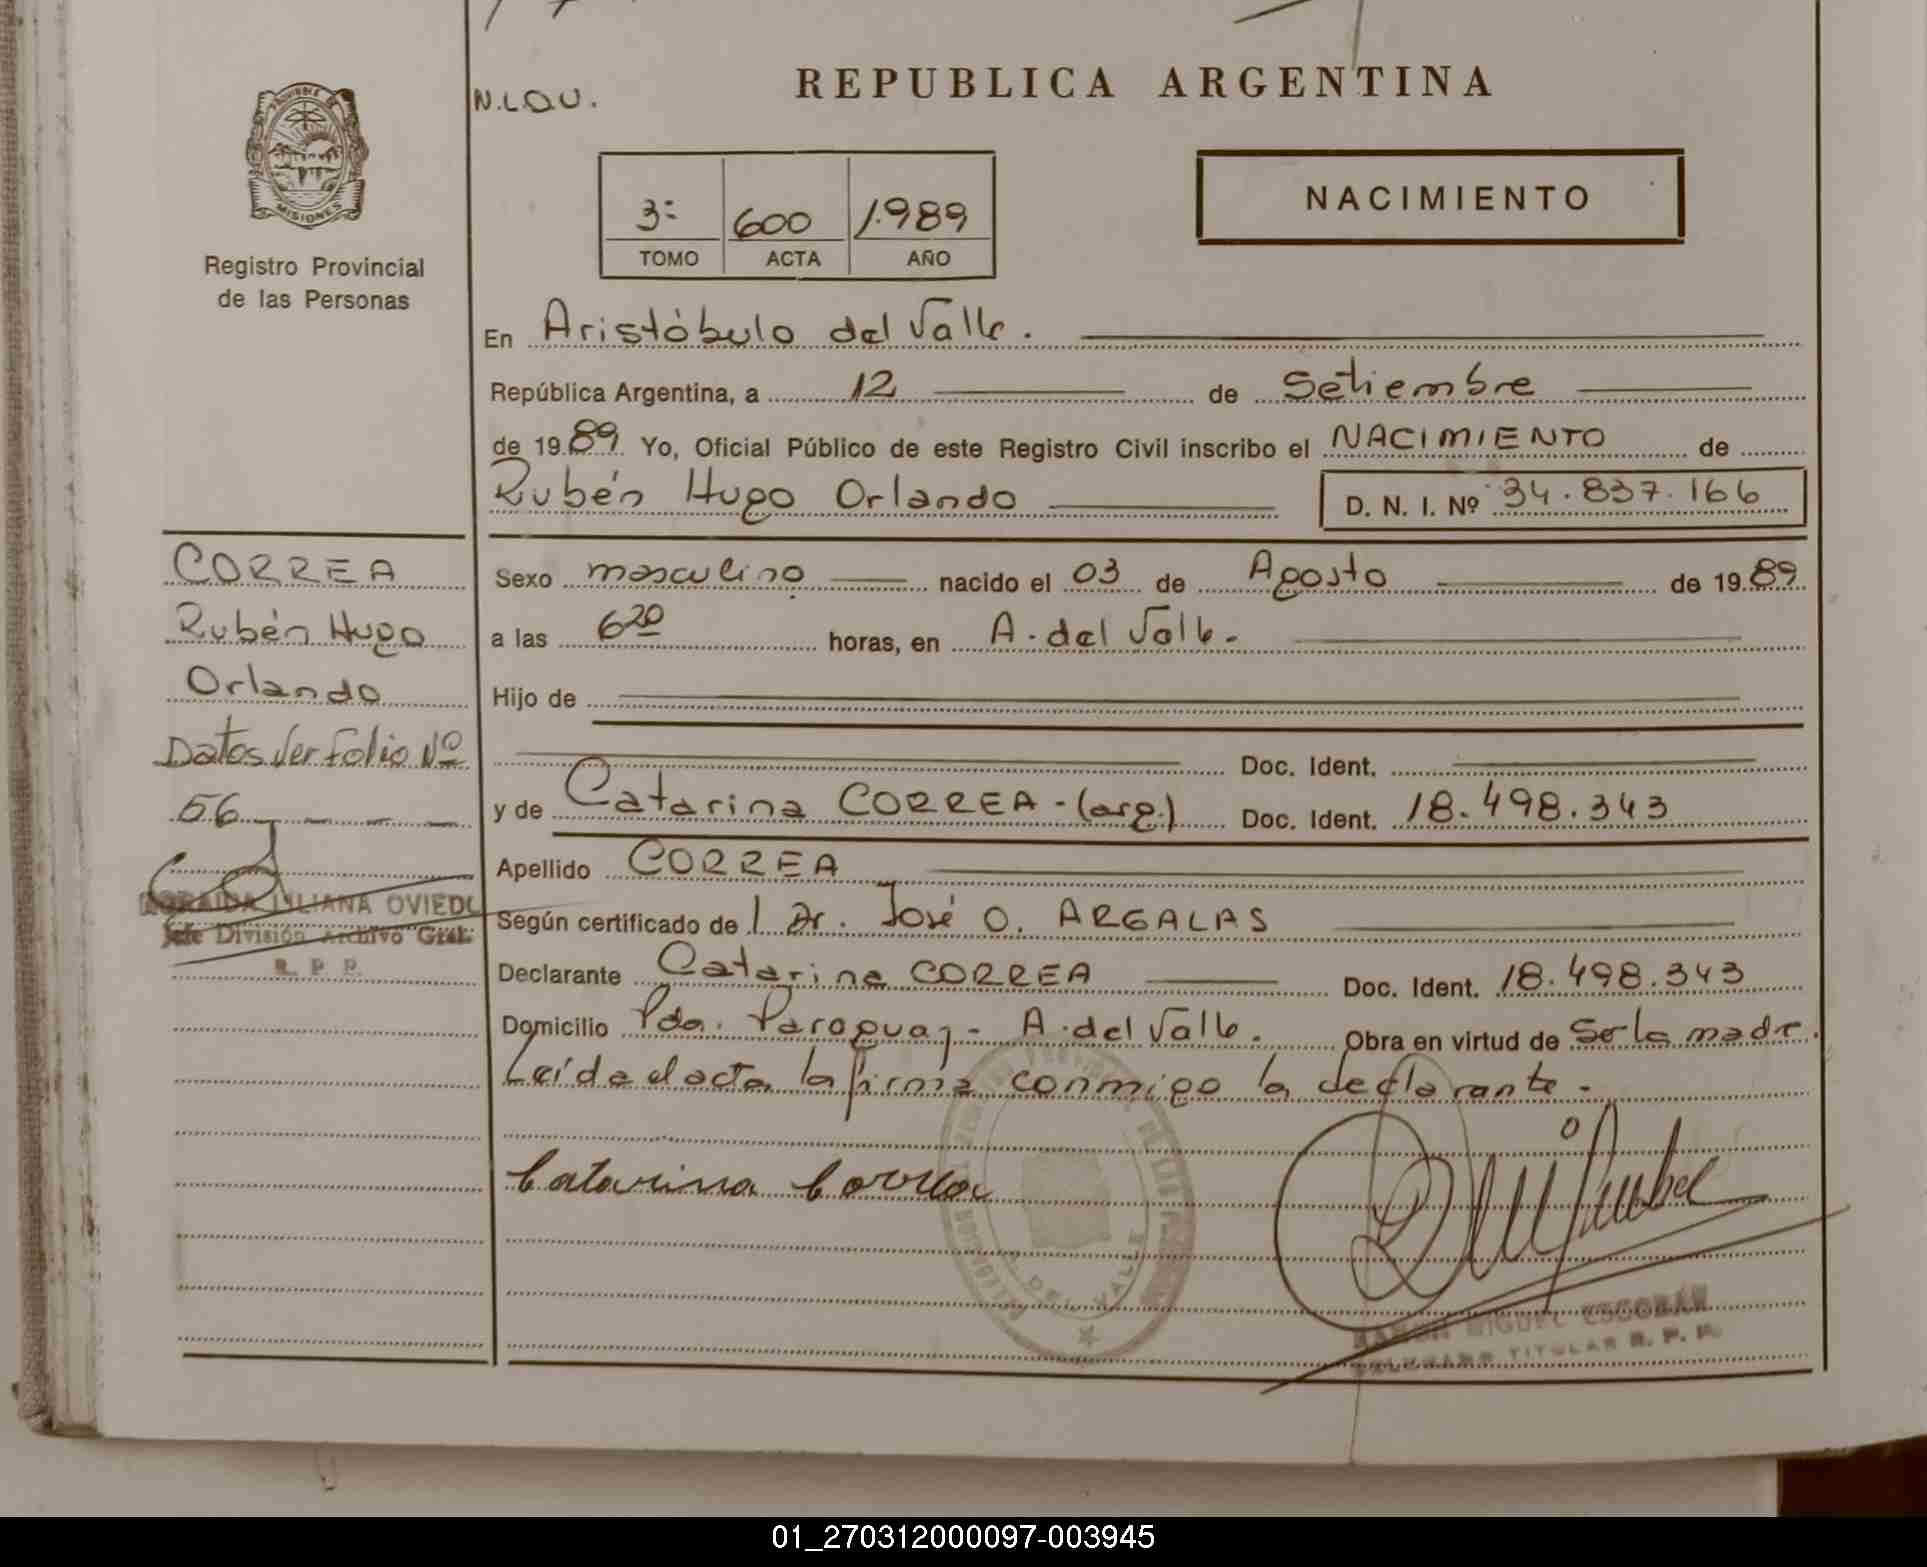 REPUBLICA ARGENTINA
PROVINCIA DE
MISIONES
Registro Provincial
de las Personas
N.L.Q.U.
3º 600 1.989
TOMO ACTA AÑO
NACIMIENTO
En Aristóbulo del Valle.
República Argentina, a 12 de Setiembre
de 1989 Yo, Oficial Público de este Registro Civil inscribo el NACIMIENTO de
Rubén Hugo Orlando D. N. I. Nº 34.837.166
CORREA
Rubén Hugo
Orlando
Datos Ver folio Nº
56
LILIANA OVIEDO
Jefe División Archivo Gral.
R. P. P.
Sexo masculino nacido el 03 de Agosto de 1989
a las 6 20 horas, en A. del Valle.
Hijo de
Doc. Ident.
y de Catarina CORREA - (arg.) Doc. Ident. 18.498.343
Apellido CORREA
Según certificado de l Dr. José O. ARGALAS
Declarante Catarina CORREA Doc. Ident. 18.498.343
Domicilio Pda. Paraguay - A. del Valle. Obra en virtud de ser la madre.
Leída el acta la firma conmigo la declarante.
Catarina Correa
DEL VALLE
MIGUEL ESCOBAR
TITULAR R. P. P.
01_270312000097-003945